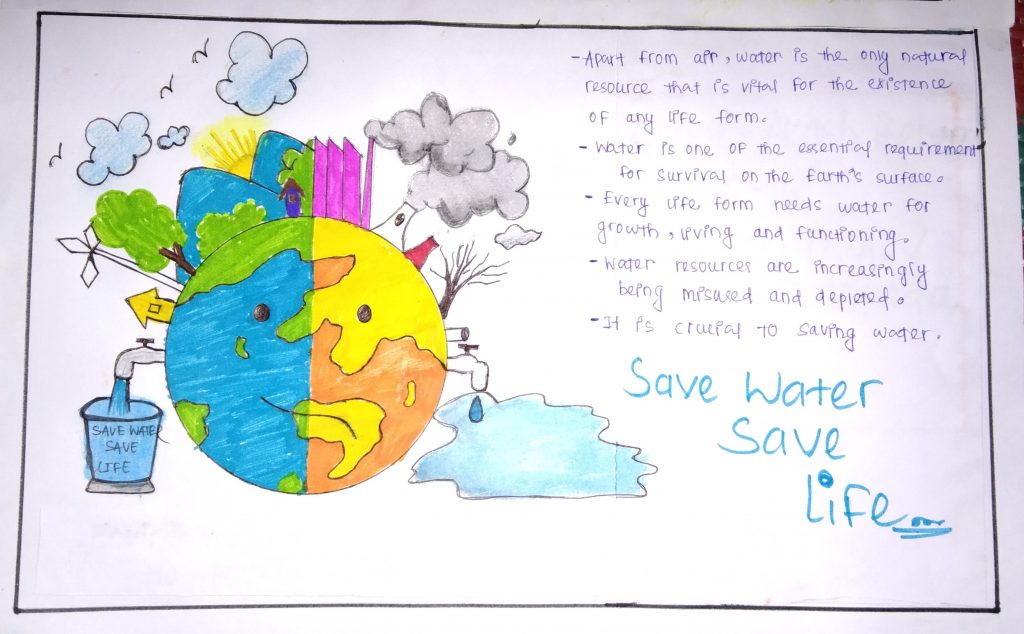 - Apart from air, water is the only natural
resource that is vital for the existence
of any life form.
- Water is one of the essential requirement
for survival on the Earth's surface.
- Every life form needs water for
growth, living and functioning.
- Water resources are increasingly
being misused and depleted.
- It is crucial to saving water.
Save Water
Save
Life
SAVE WATER
SAVE
LIFE